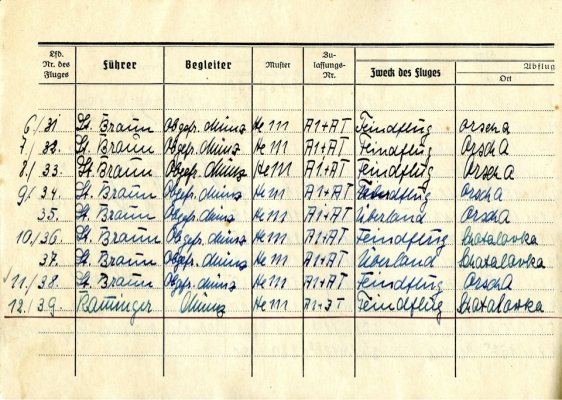 Lfd. Nr. des Fluges Führer Begleiter Muster Zu-lassungs-Nr. Zweck des Fluges Abflug Ort
6./31 Lt. Braun Obgefr. Münz He 111 A1+AT Feindflug Orscha
7./32. Lt. Braun Obgefr. Münz He 111 A1+AT Feindflug Orscha
8./33. Lt. Braun Obgefr. Münz He 111 A1+AT Feindflug Orscha
9./34. Lt. Braun Obgefr. Münz He 111 A1+AT Feindflug Orscha
35. Lt. Braun Obgefr. Münz He 111 A1+AT Überland Orscha
10./36. Lt. Braun Obgefr. Münz He 111 A1+AT Feindflug Schatalovka
37. Lt. Braun Obgefr. Münz He 111 A1+AT Überland Schatalovka
11./38. Lt. Braun Obgefr. Münz He 111 A1+AT Feindflug Orscha
12./39. Münz He 111 A1+ Feindflug Schatalovka